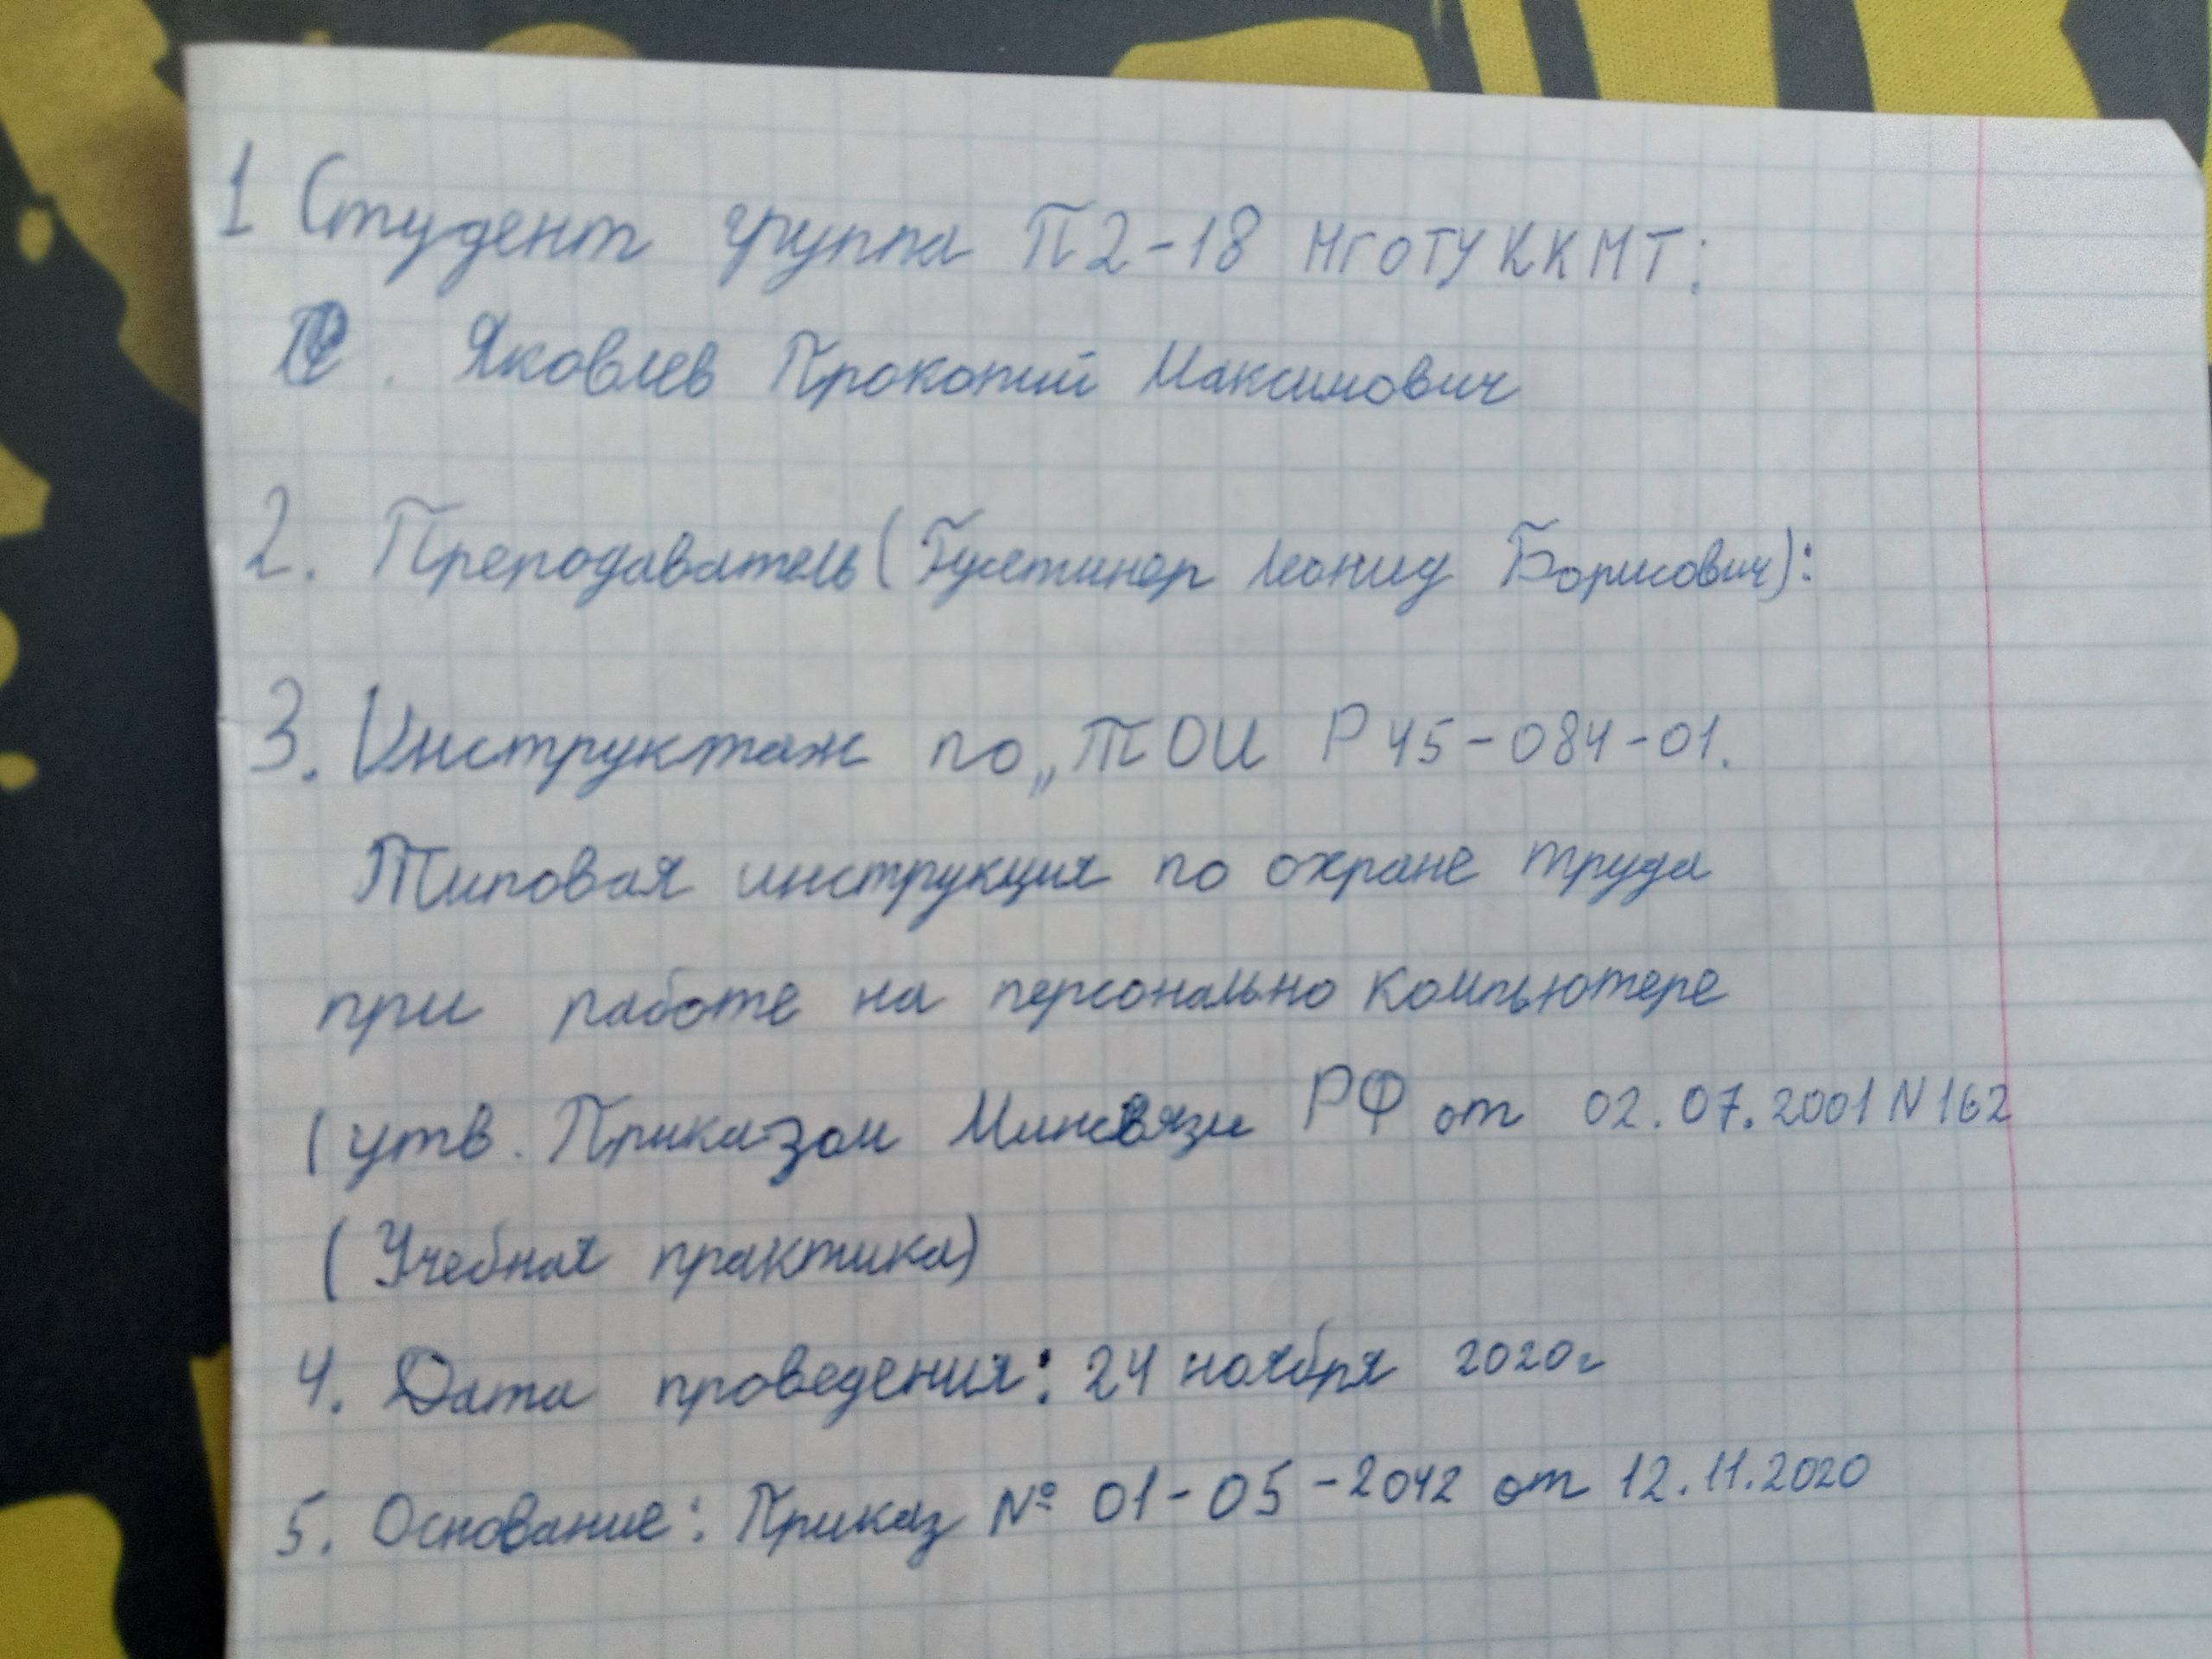 1 Студент группа П2-18 МГОТУ ККМТ:
. Яковлев Прокопий Максимович
2. Преподаватель (Гуштинер Леонид Борисович):
3. Инструктаж по „ТОИ Р 45-084-01.
Типовая инструкция по охране труда
при работе на персонально компьютере
(утв. Приказом Минсвязи РФ от 02.07.2001 N 162
(Учебная практика)
4. Дата проведения: 24 ноября 2020г
5. Основание: Приказ № 01-05-2042 от 12.11.2020